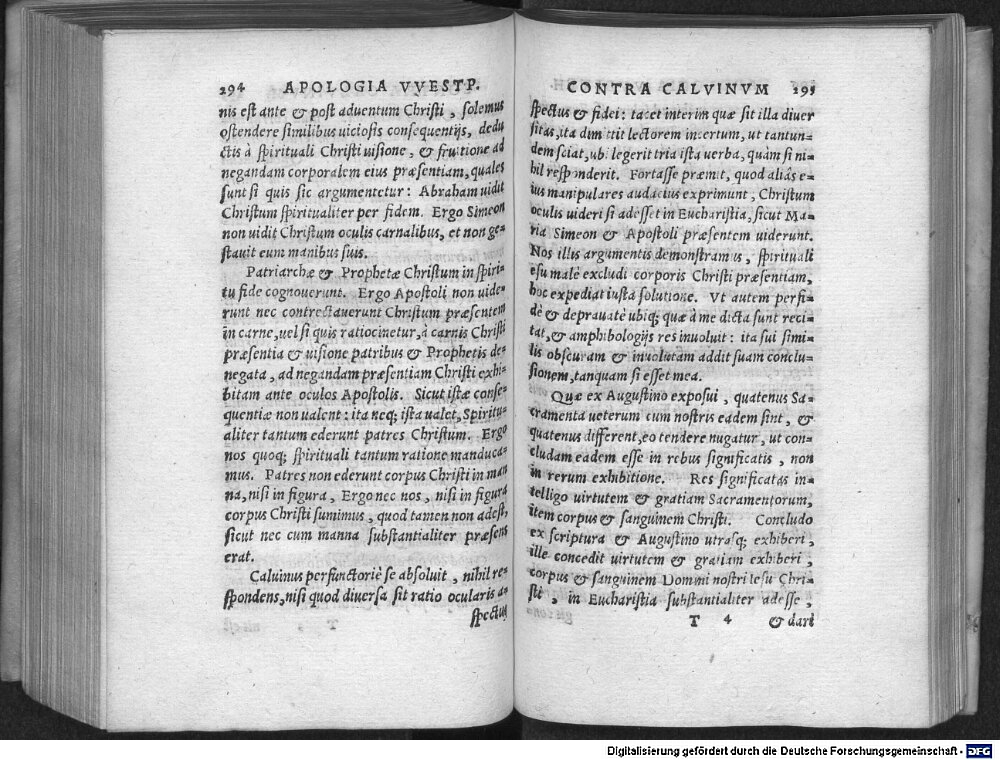 294 APOLOGIA VVESTP.
nis est ante & post aduentum Christi, solemus
ostendere similibus uiciosis consequentijs, dedu
ctis à spirituali Christi uisione, & fruitione ad
negandam corporalem eius præsentiam, quales
sunt si quis sic argumentetur: Abraham uidit
Christum spiritualiter per fidem. Ergo Simeon
non uidit Christum oculis carnalibus, et non ge=
stauit eum manibus suis.
Patriarchæ & Prophetæ Christum in spiri=
tu fide cognouerunt. Ergo Apostoli non uide=
runt nec contrectauerunt Christum præsentem
in carne, uel si quis ratiocinetur, à carnis Christi
præsentia & uisione patribus & Prophetis de=
negata, ad negandam præsentiam Christi exhi=
bitam ante oculos Apostolis. Sicut istæ conse=
quentiæ non ualent: ita neq; ista ualet, Spiritu=
aliter tantum ederunt patres Christum. Ergo
nos quoq; spirituali tantum ratione manduca=
mus. Patres non ederunt corpus Christi in man
na, nisi in figura, Ergo nec nos, nisi in figura
corpus Christi sumimus, quod tamen non adest,
sicut nec cum manna substantialiter præsens
erat.
Caluinus perfunctoriè se absoluit, nihil re=
spondens, nisi quod diuersa sit ratio ocularis a=
spectus
CONTRA CALVINVM 295
spectus & fidei: tacet interim quæ sit illa diuer
sitas, ita dimittit lectorem incertum, ut tantun=
dem sciat, ubi legerit tria ista uerba, quàm si ni=
hil responderit. Fortasse præmit, quod aliâs e=
ius manipulares audacius exprimunt, Christum
oculis uideri si adesset in Eucharistia, sicut Ma=
ria Simeon & Apostoli præsentem uiderunt.
Nos illis argumentis demonstramus, spirituali
esu malè excludi corporis Christi præsentiam,
hoc expediat iusta solutione. Vt autem perfi=
dè & deprauatè ubiq; quæ à me dicta sunt reci=
tat, & amphibologijs res inuoluit: ita sui simi=
lis obscuram & inuolutam addit suam conclu=
sionem, tanquam si esset mea.
Quæ ex Augustino exposui, quatenus Sa=
cramenta ueterum cum nostris eadem sint, &
quatenus different, eo tendere nugatur, ut con=
cludam eadem esse in rebus significatis, non
in rerum exhibitione. Res significatas in=
telligo uirtutem & gratiam Sacramentorum,
item corpus & sanguinem Christi. Concludo
ex scriptura & Augustino utrasq; exhiberi,
ille concedit uirtutem & gratiam exhiberi,
corpus & sanguinem Domini nostri Iesu Chri=
sti, in Eucharistia substantialiter adesse,
T 4 & dari
Digitalisierung gefördert durch die Deutsche Forschungsgemeinschaft - DFG